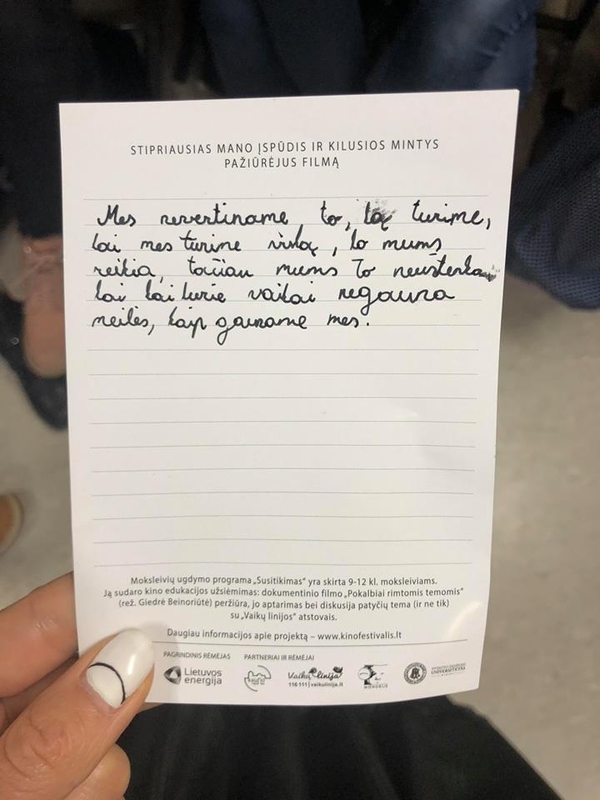 STIPRIAUSIAS MANO ĮSPŪDIS IR KILUSIOS MINTYS
PAŽIŪRĖJUS FILMĄ
Mes nevertiname to, ką turime,
kai mes turime viską, ko mums
reikia, tačiau mums to neužtenka
kai kai kurie vaikai negauna
meilės, kaip gauname mes.
Moksleivių ugdymo programa „Susitikimas" yra skirta 9-12 kl. moksleiviams.
Ją sudaro kino edukacijos užsiėmimas: dokumentinio filmo „Pokalbiai rimtomis temomis"
(rež. Giedrė Beinoriūtė) peržiūra, jo aptarimas bei diskusija patyčių tema (ir ne tik)
su „Vaikų linijos" atstovais.
Daugiau informacijos apie projektą – www.kinofestivalis.lt
PAGRINDINIS RĖMĖJAS PARTNERIAI IR RĖMĖJAI
Lietuvos
energija
Vaikų linija
116 111 | vaikulinija.lt